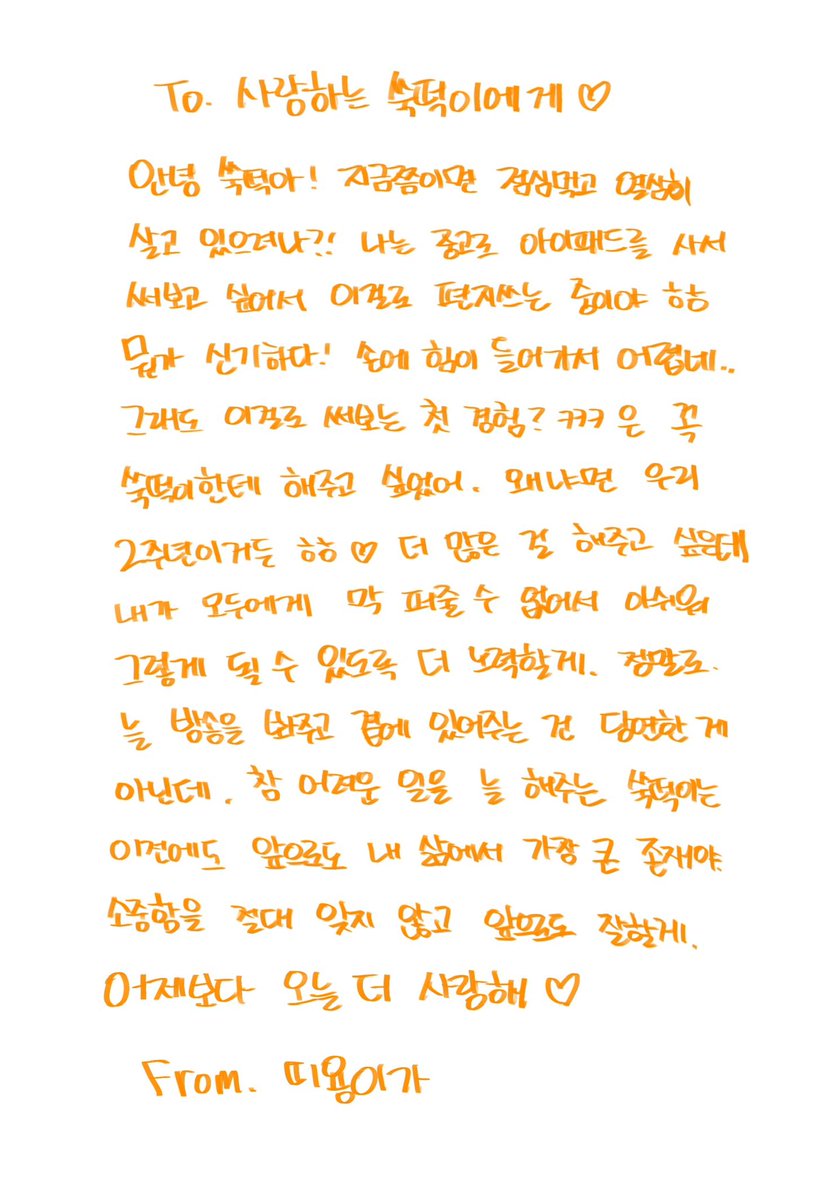 To. 사랑하는 쑥떡이에게♡
안녕 쑥떡아! 지금쯤이면 점심먹고 열심히
살고 있으려나?! 나는 중고로 아이패드를 사서
써보고 싶어서 이걸로 편지쓰는 중이야 ㅎㅎ
뭔가 신기하다! 손에 힘이 들어가서 어렵네..
그래도 이걸로 써보는 첫 경험? ㅋㅋㅋ은 꼭
쑥떡이한테 해주고 싶었어. 왜냐면 우리
2주년이거든 ㅎㅎ♡ 더 많은 걸 해주고 싶은데
내가 모두에게 막 퍼줄 수 없어서 아쉬워
그렇게 될 수 있도록 더 노력할게. 정말로.
늘 방송을 봐주고 곁에 있어주는 건 당연한 게
아닌데. 참 어려운 일을 늘 해주는 쑥떡이는
이전에도 앞으로도 내 삶에서 가장 큰 존재야.
소중함을 절대 잊지 않고 앞으로도 잘할게.
어제보다 오늘 더 사랑해♡
From. 띠용이가